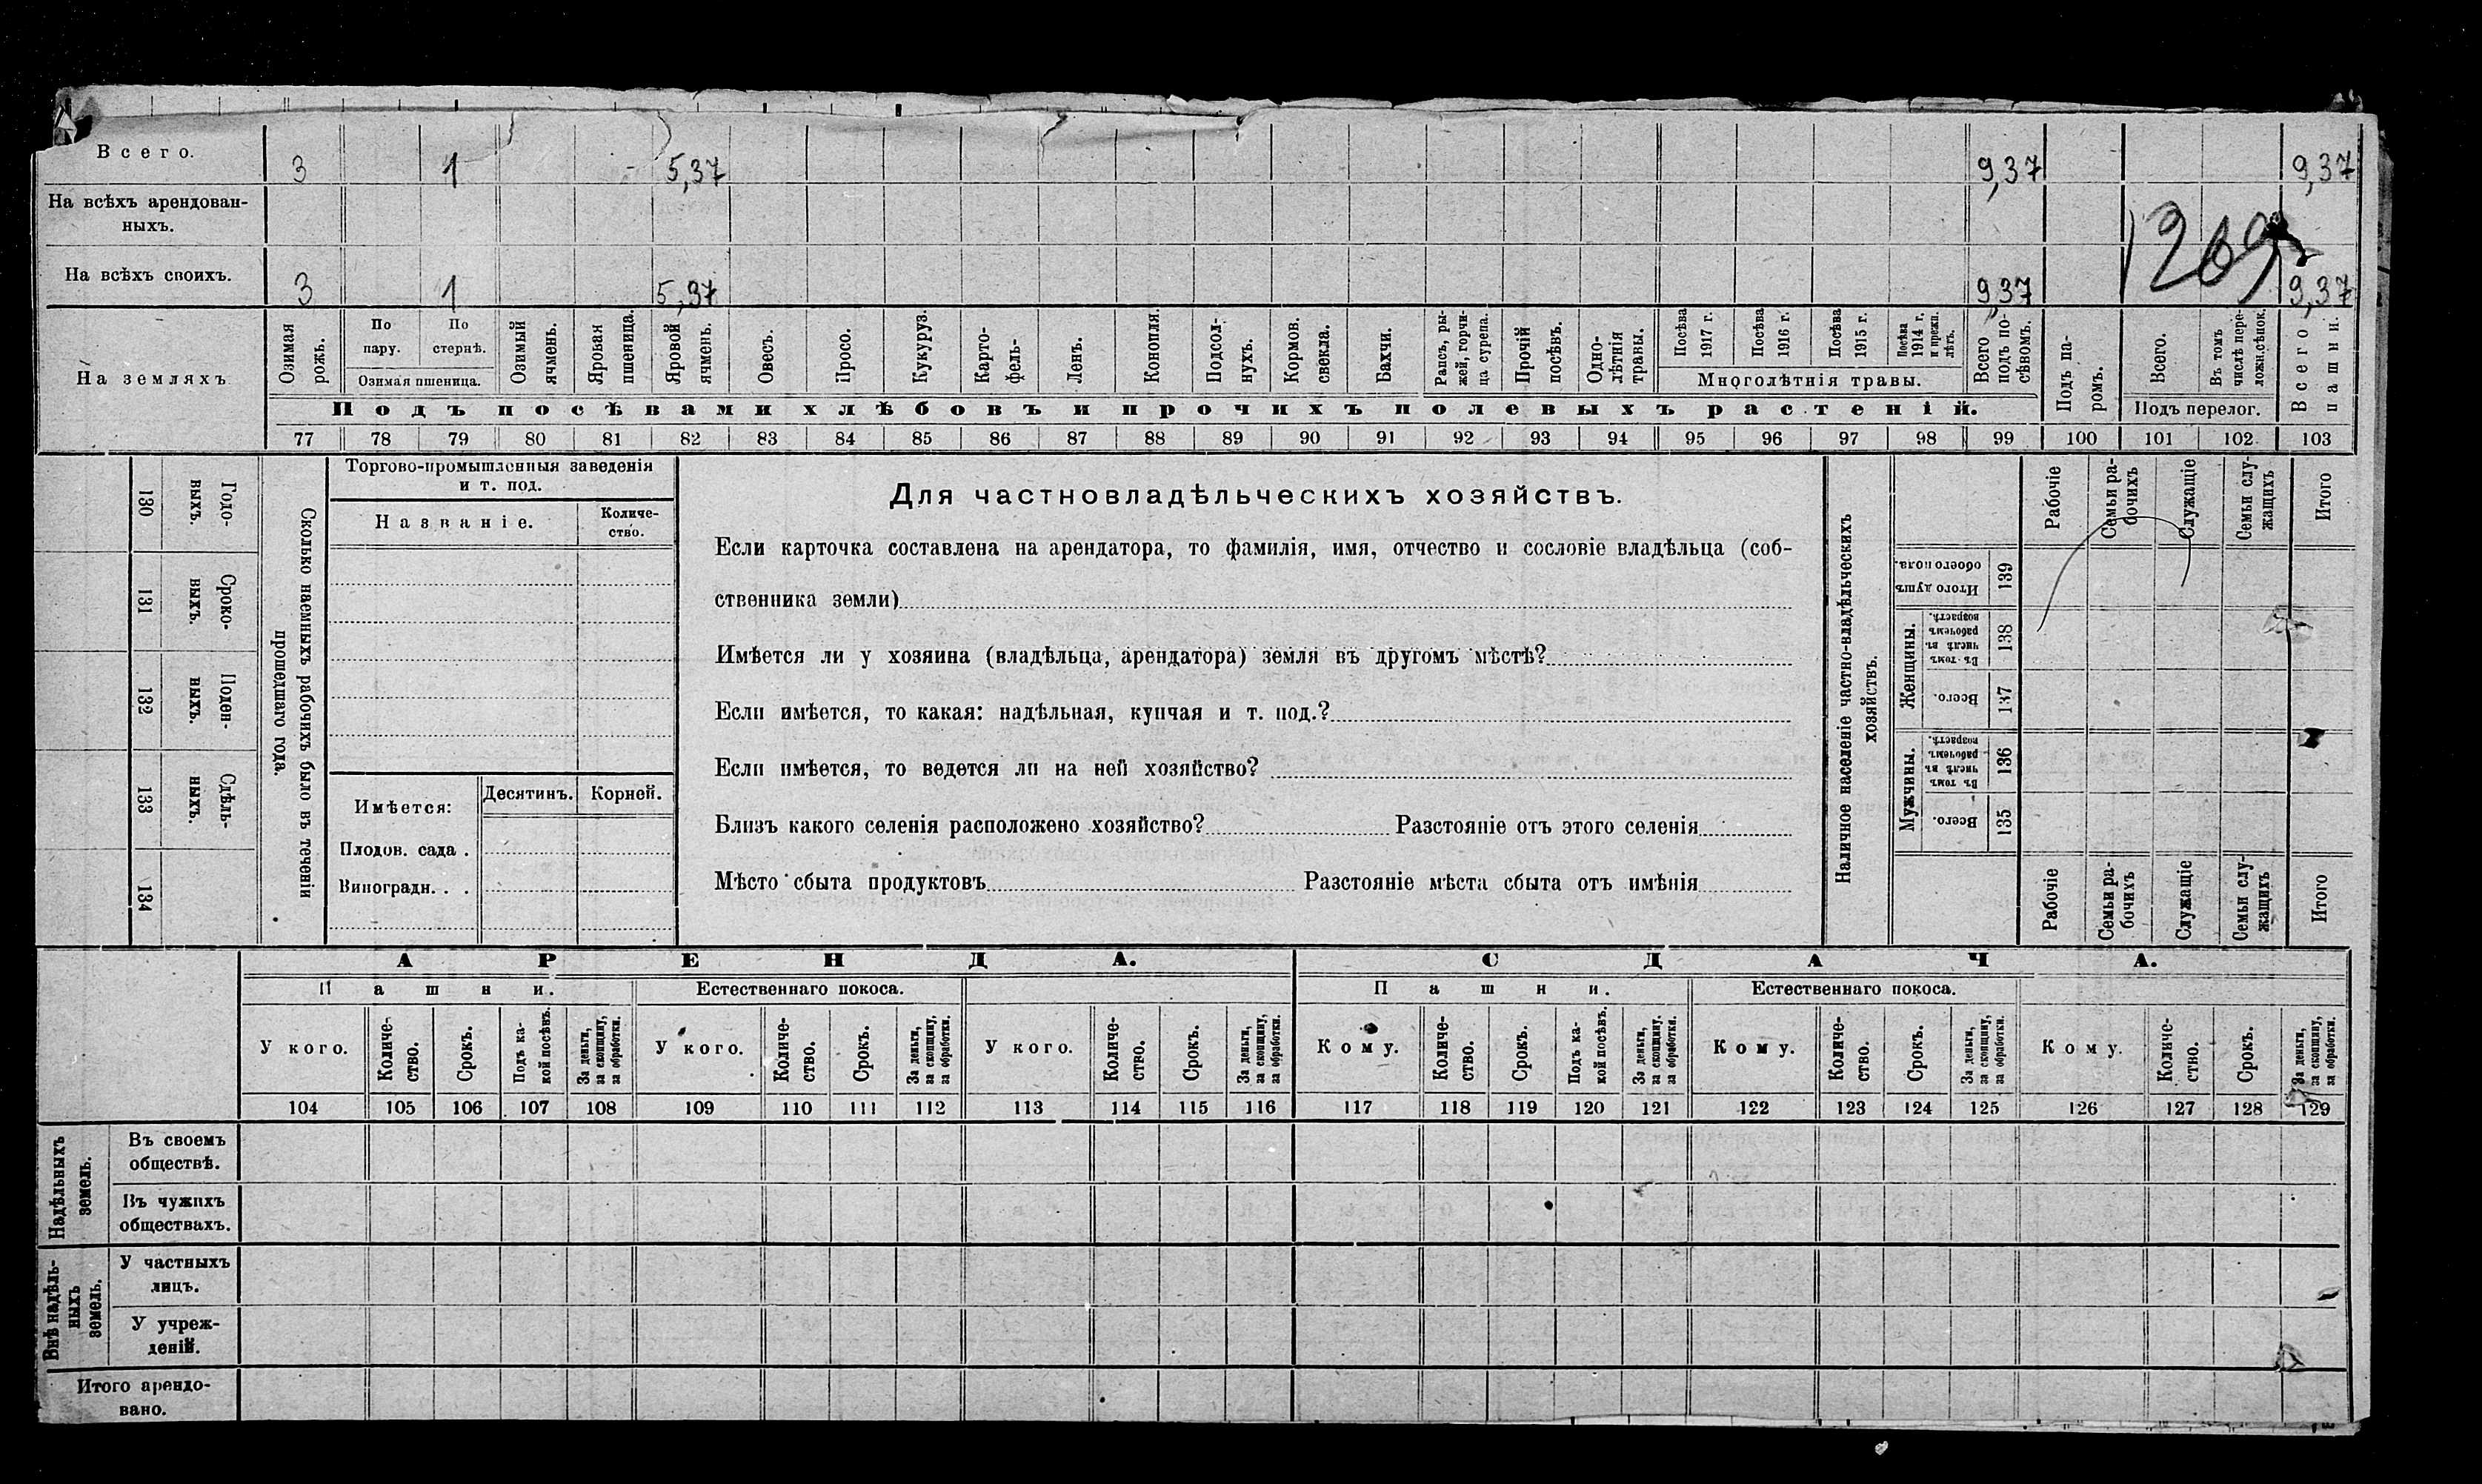 Всего. 3 1 5,37 9,37 9,37
На всѣхъ арендован-
ныхъ.
1269
На всѣхъ своихъ. 3 1 5,37 9,37 9,37
На земляхъ
Озимая рожь.
По пару.
По стернѣ.
Озимая пшеница.
Озимый ячмень.
Яровая пшеница.
Яровой ячмень.
Овесъ.
Просо.
Кукуруз.
Карто-
фель-
Ленъ.
Конопля.
Подсол-
нухъ.
Кормов.
свекла.
Бахчи.
Рапсъ, ры-
жей, горчи-
ца сурепа.
Прочій
посѣвъ.
Одно-
лѣтнія
травы.
Посѣва
1917 г.
Посѣва
1916 г.
Посѣва
1915 г.
Посѣва
1914 г.
и прежн.
лѣтъ.
Многолѣтнія травы.
Всего
подъ по-
сѣвомъ.
Подъ па-
ромъ.
Всего.
Въ томъ
числѣ пере-
ложн.сѣнок.
Подъ перелог.
Всего
пашни.
Подъ посѣвами хлѣбовъ и прочихъ полевыхъ растеній.
77 78 79 80 81 82 83 84 85 86 87 88 89 90 91 92 93 94 95 96 97 98 99 100 101 102 103
130 Годо-
выхъ.
131 Сроко-
выхъ.
132 Поден-
ныхъ.
133 Сдѣль-
ныхъ.
134
Сколько наемныхъ рабочихъ было въ теченіи
прошедшаго года.
Торгово-промышленныя заведенія
и т. под.
Названіе.
Количе-
ство.
Имѣется:
Десятинъ. Корней.
Плодов. сада .
Виноградн. . .
Для частновладѣльческихъ хозяйствъ.
Если карточка составлена на арендатора, то фамилія, имя, отчество и сословіе владѣльца (соб-
ственника земли)
Имѣется ли у хозяина (владѣльца, арендатора) земля въ другомъ мѣстѣ?
Если имѣется, то какая: надѣльная, купчая и т. под.?
Если имѣется, то ведется ли на ней хозяйство?
Близъ какого селенія расположено хозяйство? Разстояніе отъ этого селенія
Мѣсто сбыта продуктовъ Разстояніе мѣста сбыта отъ имѣнія
Наличное населеніе частно-владѣльческихъ
хозяйствъ.
Рабочіе
Семьи ра-
бочихъ
Служащіе
Семьи слу-
жащихъ
Итого
Итого душъ
обоего пола.
139
Женщины.
Въ томъ
числѣ въ
рабочемъ
возрастѣ.
138
Всего.
137
Мужчины.
Въ томъ
числѣ въ
рабочемъ
возрастѣ.
136
Всего.
135
Рабочіе
Семьи ра-
бочихъ
Служащіе
Семьи слу-
жащихъ
Итого
АРЕНДА. СДАЧА.
Пашни. Естественнаго покоса. Пашни. Естественнаго покоса.
У кого.
Количе-
ство.
Срокъ.
Подъ ка-
кой посѣвъ.
За деньги,
за скопщину,
за обработки.
У кого.
Количе-
ство.
Срокъ.
За деньги,
за скопщину,
за обработки.
У кого.
Количе-
ство.
Срокъ.
За деньги,
за скопщину,
за обработки.
Кому.
Количе-
ство.
Срокъ.
Подъ ка-
кой посѣвъ.
За деньги,
за скопщину,
за обработки.
Кому.
Количе-
ство.
Срокъ.
За деньги,
за скопщину,
за обработки.
Кому.
Количе-
ство.
Срокъ.
За деньги,
за скопщину,
за обработки.
104 105 106 107 108 109 110 111 112 113 114 115 116 117 118 119 120 121 122 123 124 125 126 127 128 129
Надѣльныхъ
земель.
Въ своемъ
обществѣ.
Въ чужихъ
обществахъ.
Внѣ надѣль-
ныхъ
земель.
У частныхъ
лицъ.
У учреж-
деній.
Итого арендо-
вано.